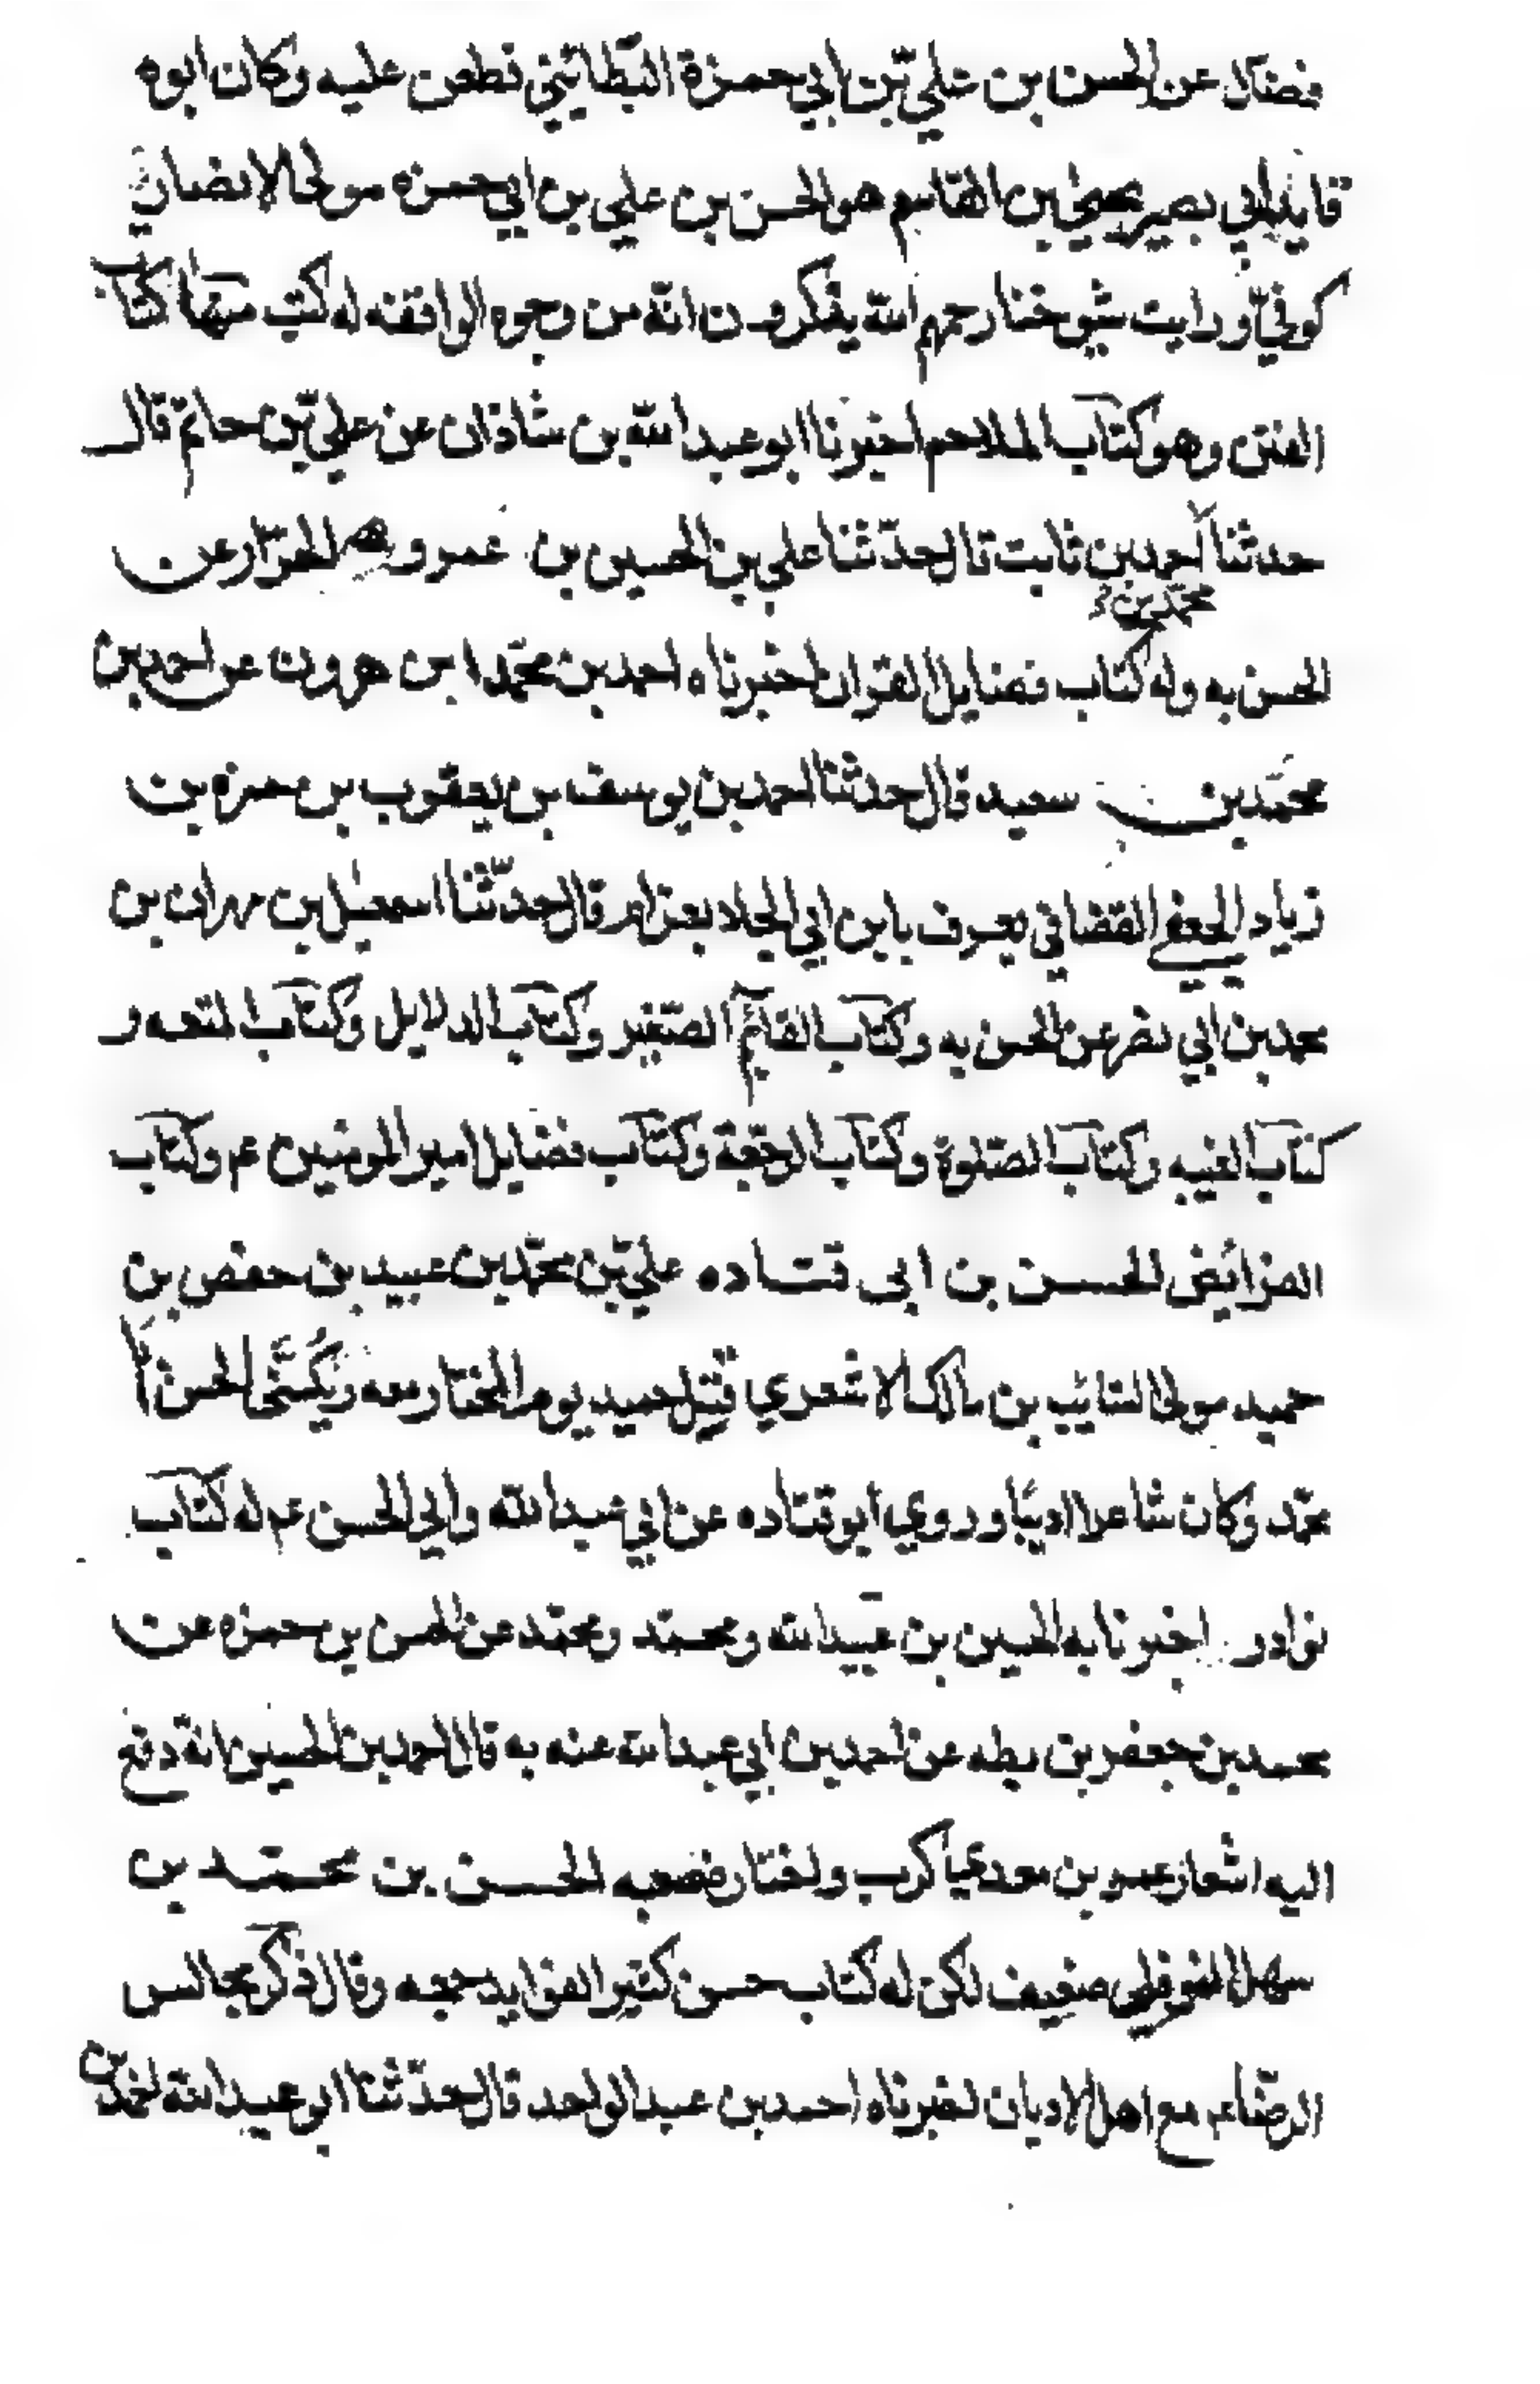 فضال عن الحسن بن علي بن ابي حمزة البطائني فطعن عليه وكان ابوه
قايد ابي بصير يحيى بن القاسم هو الحسن بن علي بن ابي حمزه مولى الانصاري
كوفي ورايت شيوخنا رحمهم الله يذكرون انه من وجوه الواقفه له كتب منها كتاب
الفتن وهو كتاب الملاحم اخبرنا ابو عبد الله بن شاذان عن علي بن حاتم قال
حدثنا احمد بن ثابت قال حدثنا علي بن الحسين بن عمرو الخزاز عن
محمد بن
الحسن به وله كتاب فضايل القران اخبرناه احمد بن محمد ابن هرون عن احمد بن
محمد بن سعيد قال حدثنا احمد بن يوسف بن يعقوب بن حمزه بن
زياد الجعفي القضاني يعرف بابن ابي الجلا بعزرام قال حدثنا اسمعيل بن مهران بن
محمد بن ابي نصر عن الحسن به وكتاب القايم الصغير وكتاب الدلايل وكتاب المتعه و
كتاب الغيبه وكتاب الصلوة وكتاب الرجعة وكتاب فضايل امير المومنين عم وكتاب
الفرائض الحسن بن ابى قتاده علي بن محمد بن عبيد بن حفص بن
حميد مولى السائب بن مالك الاشعري قتل حميد يوم المختار معه ويكنى الحسن ابا
محمد وكان شاعرا اديبا وروي ابو قتاده عن ابي عبد الله وابي الحسن عم له كتاب
نوادر اخبرنا به الحسين بن عبيد الله ومحمد ومحمد عن الحسن بن حمزه عن
محمد بن جعفر بن بطه عن احمد بن ابي عبد الله عنه به قال احمد بن الحسين انه دفع
اليه اشعار عمرو بن معدي كرب واخبار صنعه الحسن بن محمد بن
سهل النوفلي ضعيف لكن له كتاب حسن كثير الفوايد جمعه وقال ذكر مجالس
الرضا عم مع اهل الاديان اخبرناه احمد بن عبد الواحد قال حدثنا ابو عبد الله احمد بن